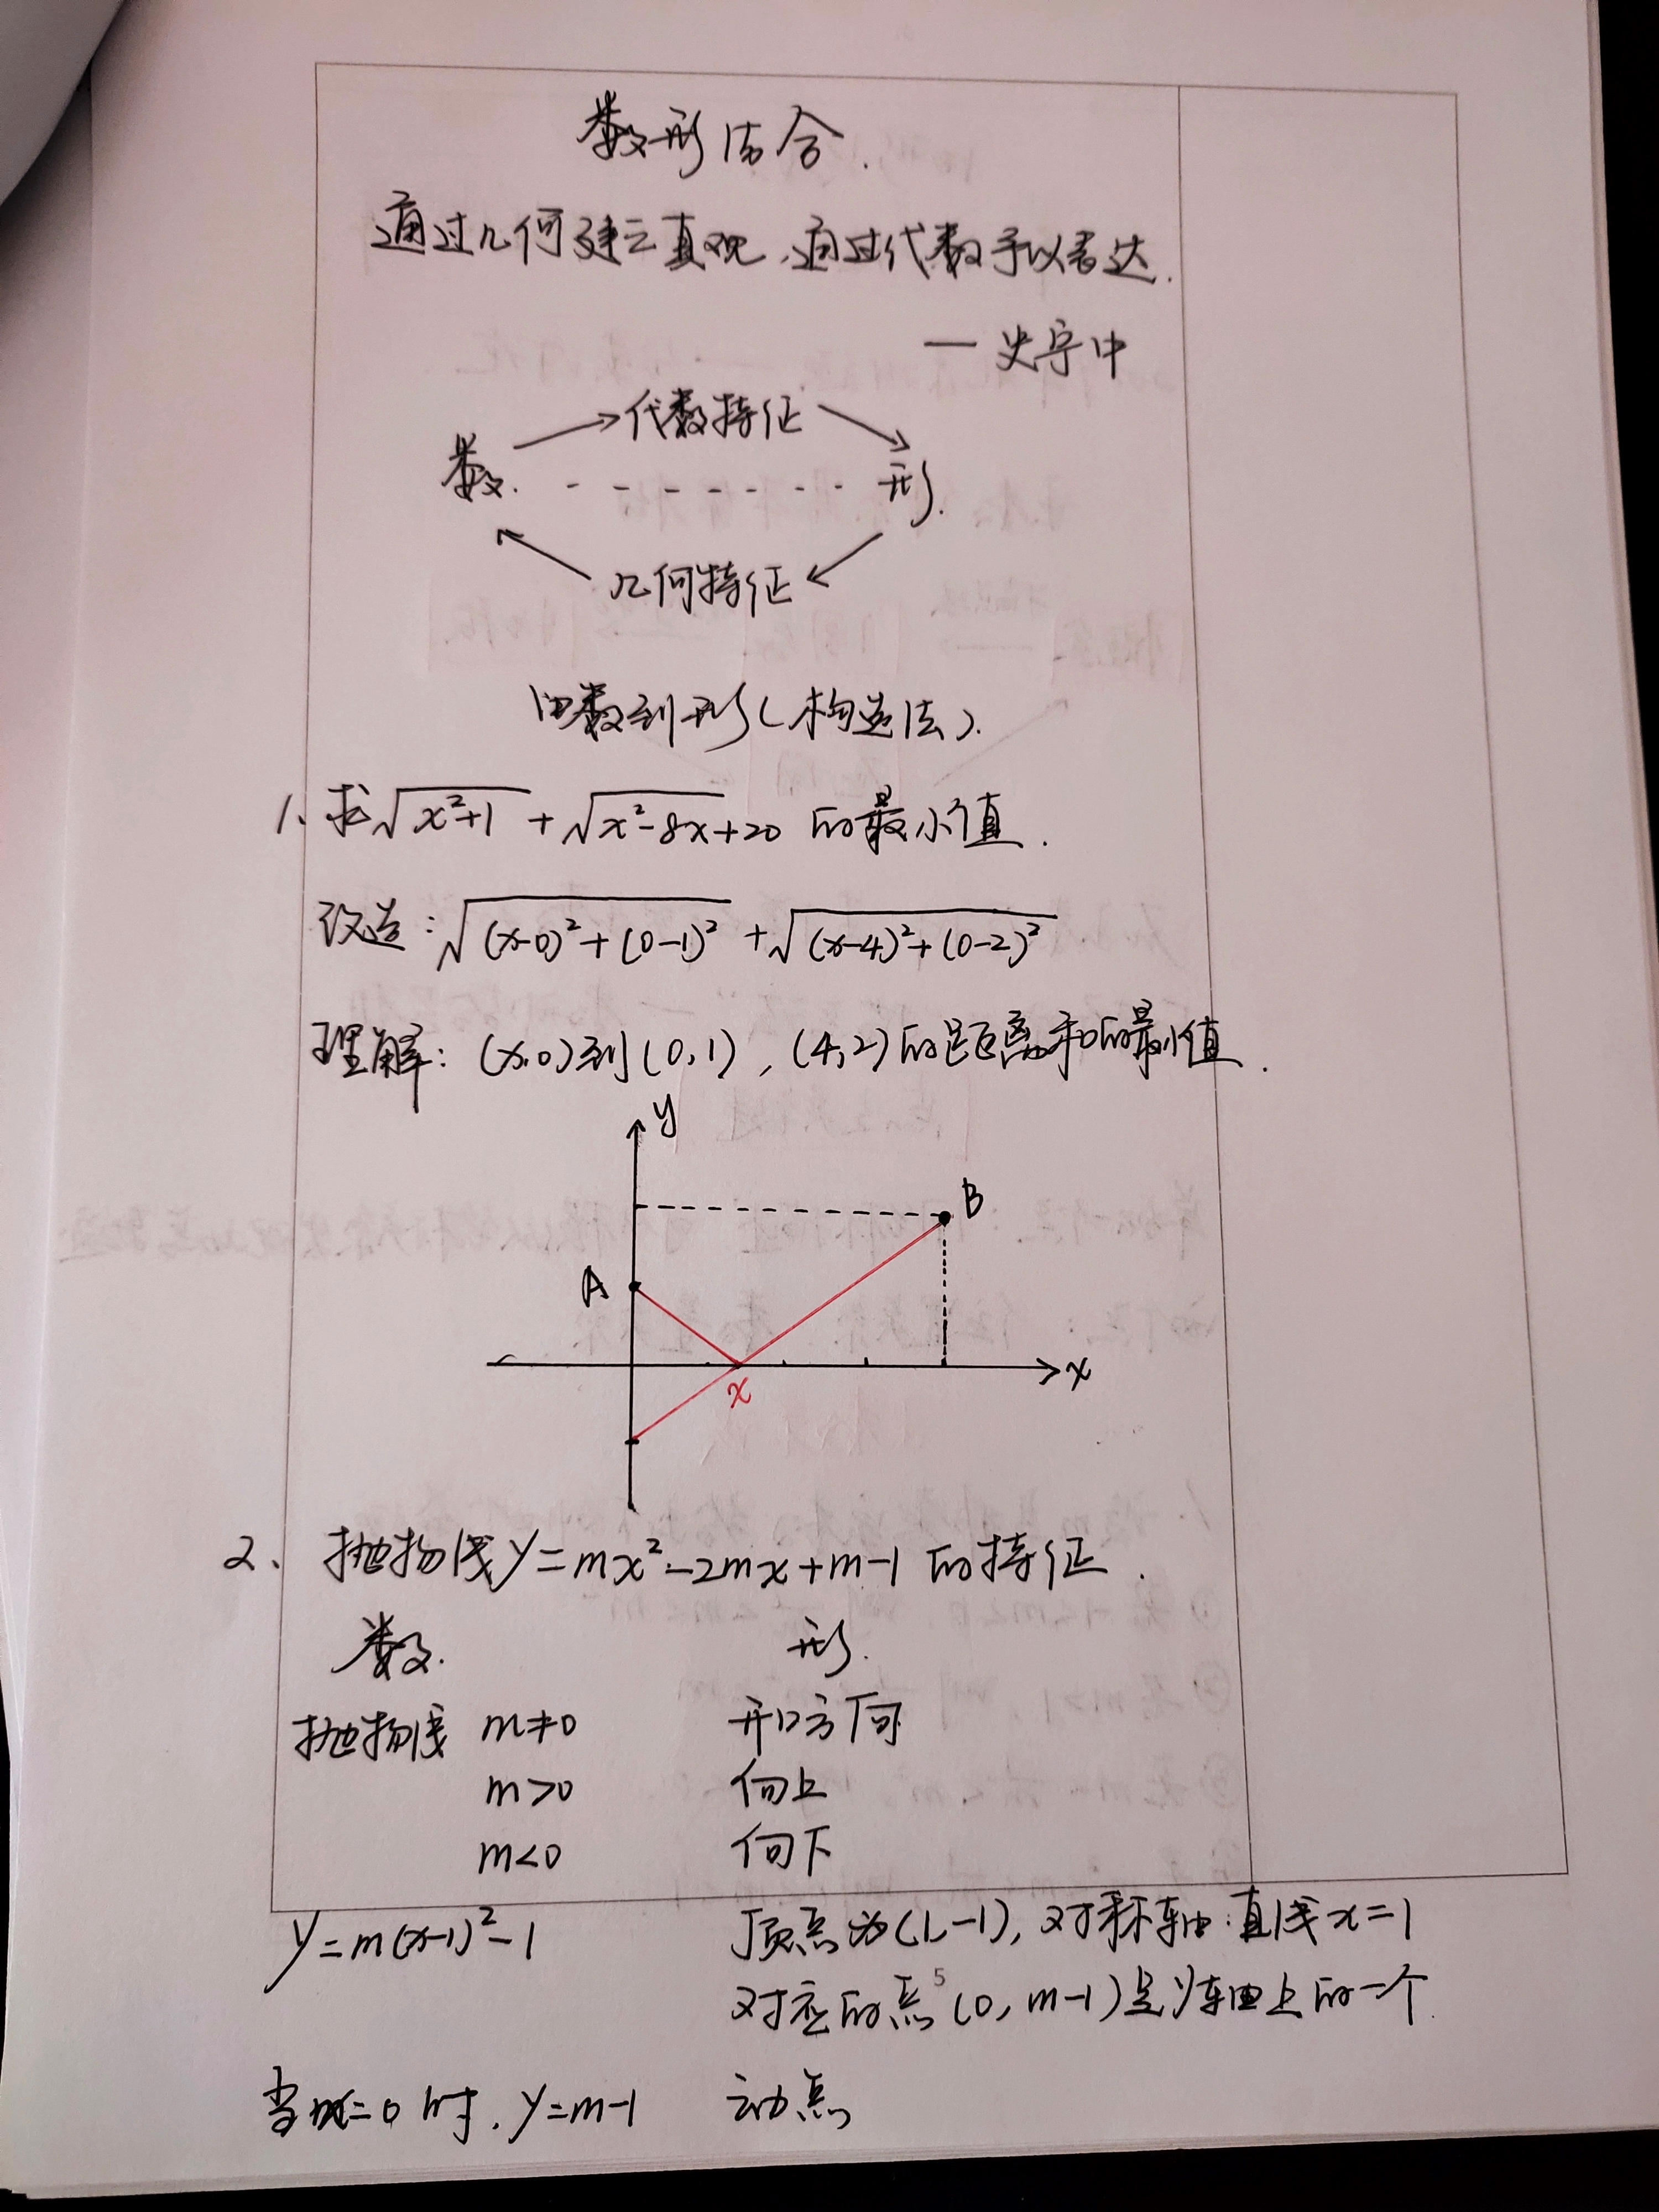 数形结合.
通过几何建立直观,通过代数予以表达.
— 史宁中
代数特征
数. 形.
几何特征
由数到形(构造法).
1、求√(x²+1) + √(x²-8x+20) 的最小值.
改造:√((x-0)²+(0-1)²) + √((x-4)²+(0-2)²)
理解:(x,0)到(0,1),(4,2)的距离和的最小值.
y
B
A
x
x
2、抛物线y=mx²-2mx+m-1 的特征.
数. 形.
抛物线 m≠0 开口方向
m>0 向上
m<0 向下
y=m(x-1)²-1 顶点为(1,-1),对称轴:直线x=1
5
对应的点(0,m-1)是y轴上的一个
当x=0时,y=m-1 动点